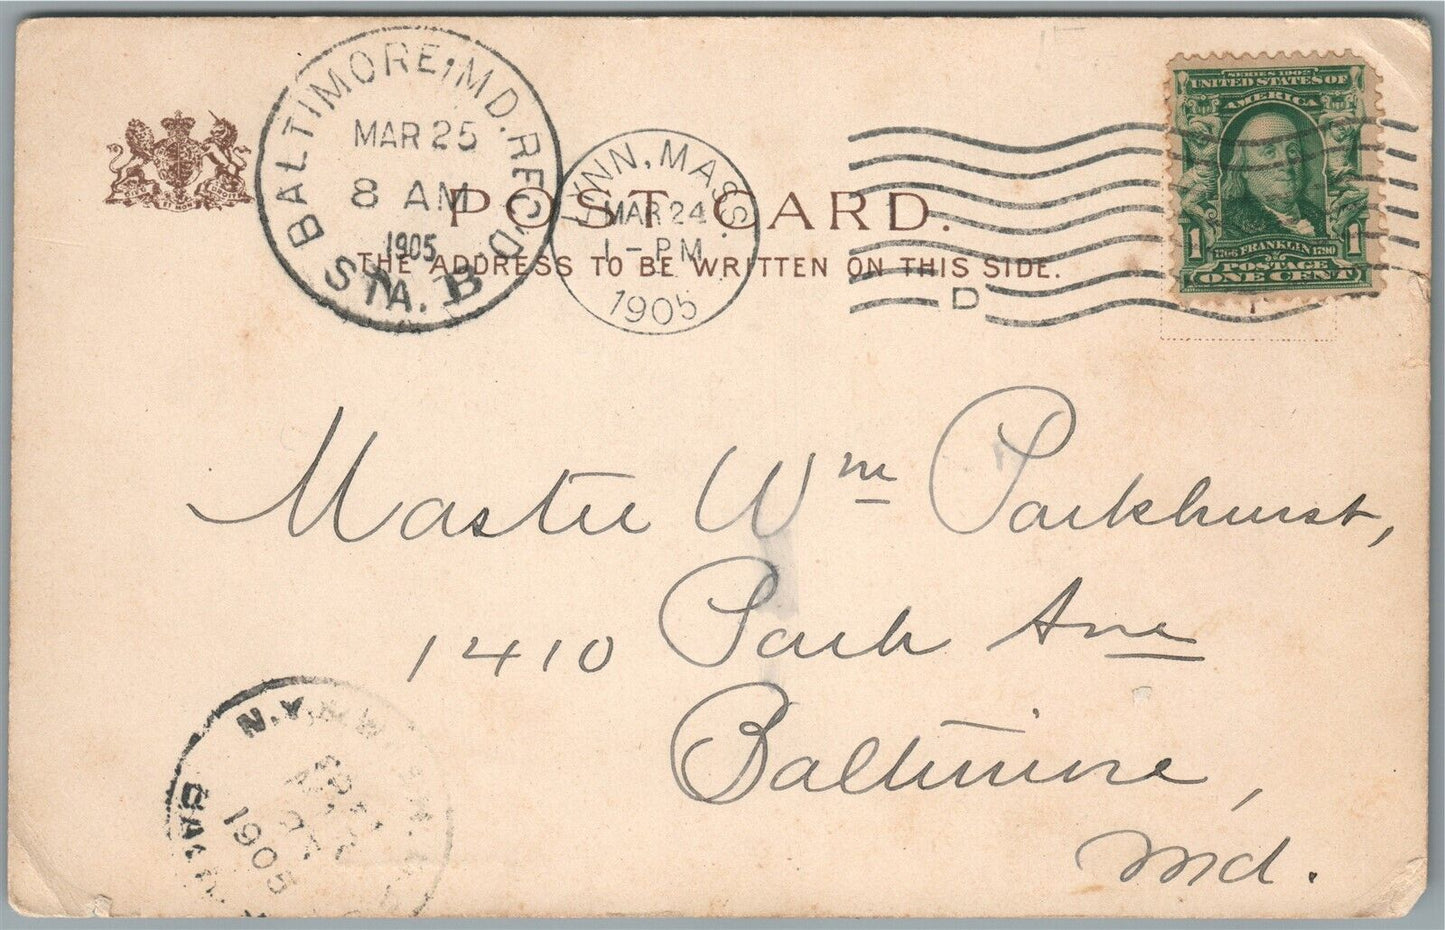 BALTIMORE, MD. REC'D.
MAR 25
8 AM
1905
STA. B
LYNN, MASS.
MAR 24
1-PM
1905
D
SERIES 1902
UNITED STATES OF
AMERICA
1 FRANKLIN 1
POSTAGE
ONE CENT
POST CARD.
THE ADDRESS TO BE WRITTEN ON THIS SIDE.
Master Wm Parkhurst,
1410 Park Ave
Baltimore,
Md.
N.Y.
1905